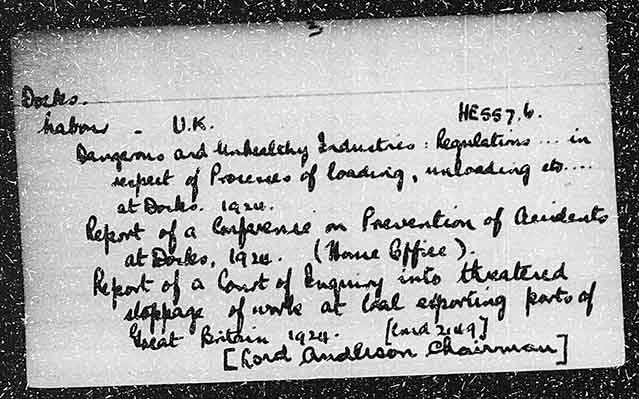 3
Docks.
Labour - U.K. HE557.6.
Dangerous and Unhealthy Industries: Regulations ... in
respect of Processes of loading, unloading etc....
at Docks. 1924.
Report of a Conference on Prevention of Accidents
at Docks, 1924. (Home Office).
Report of a Court of Enquiry into threatened
stoppage of work at Coal exporting ports of
Great Britain 1924. [Cmd 2149]
[Lord Anderson Chairman]